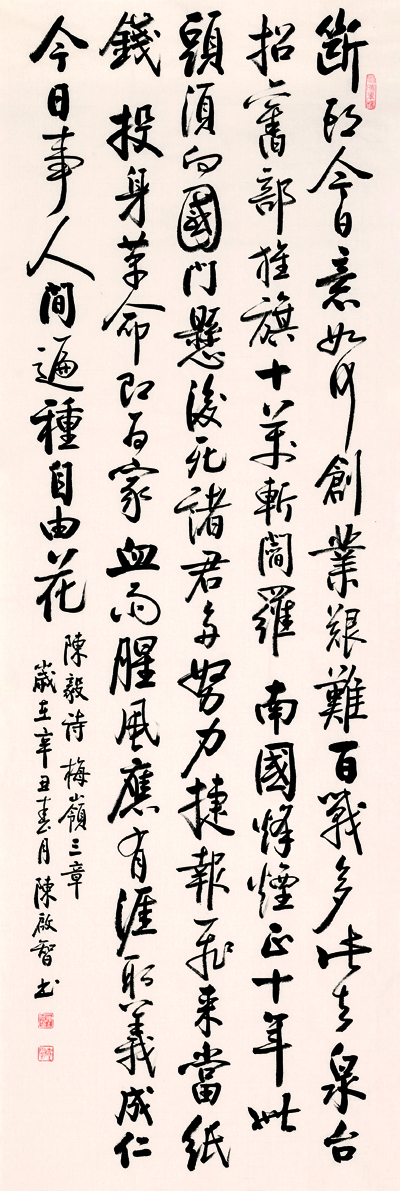 斷頭今日意如何創業艱難百戰多此去泉台
招舊部旌旗十萬斬閻羅南國烽煙正十年此
頭須向國門懸後死諸君多努力捷報飛來當紙
錢投身革命即為家血雨腥風應有涯取義成仁
今日事人間遍種自由花
陳毅詩梅嶺三章
歲在辛丑春月陳啟智書